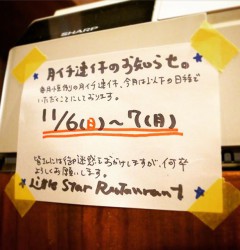 SHARP
月イチ連休のお知らせ。
毎月小恒例の月イチ連休、今月は以下の日程で
いただくことにしております。
11/6(日)～7(月)
皆さんには御迷惑をおかけしますが、何卒
よろしくお願いします。
Little Star Restaurant